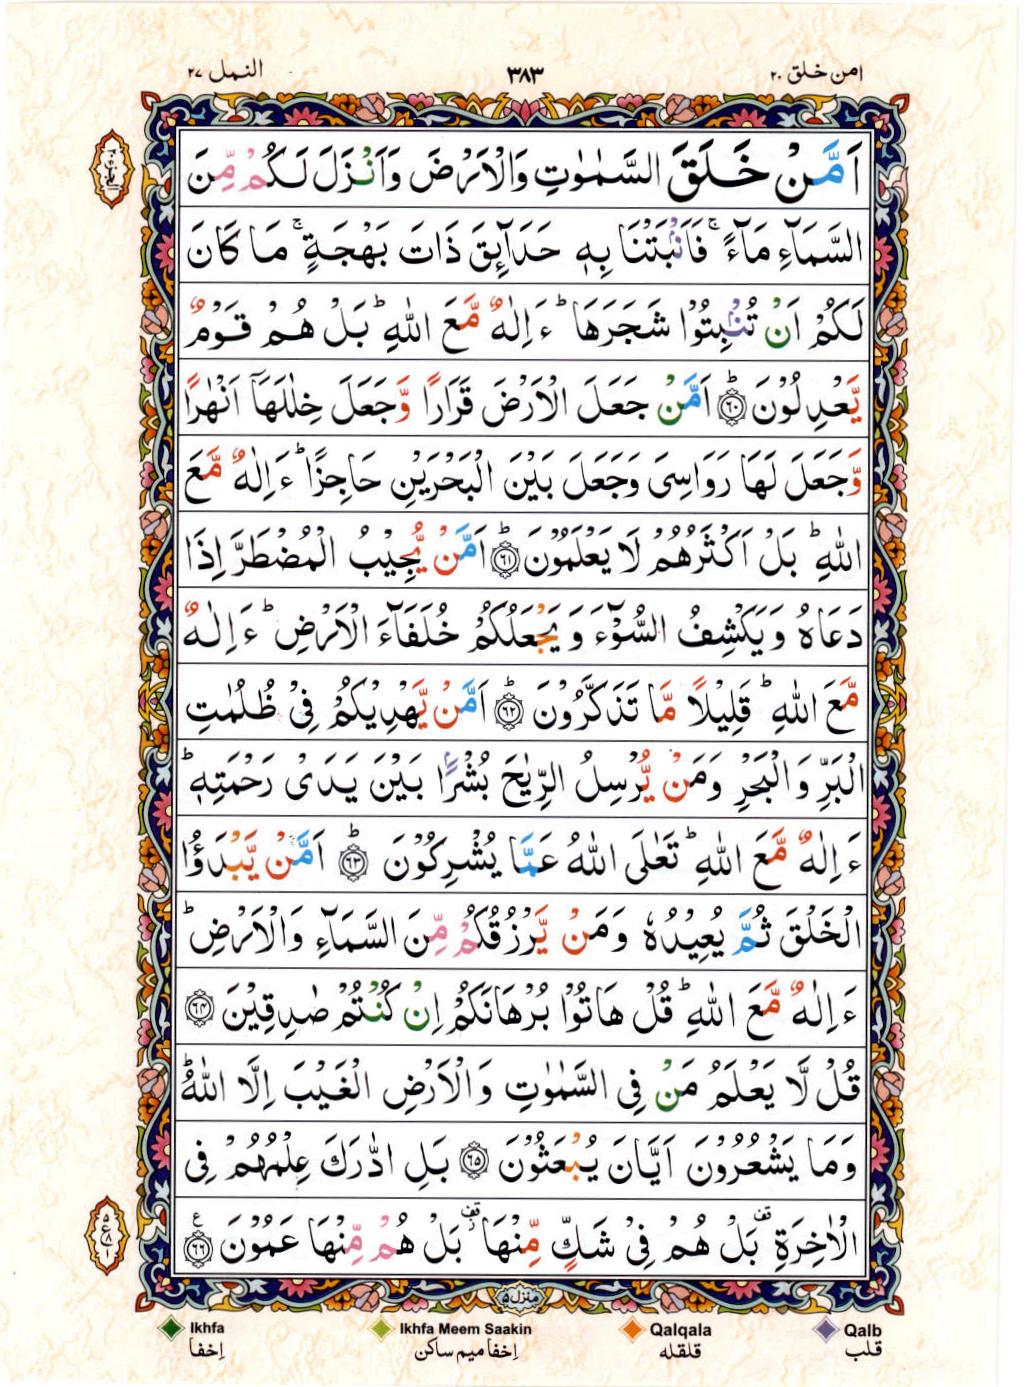 امن خلق ٢٠ ٣٨٣ النمل ٢٧
اَمَّنْ خَلَقَ السَّمٰوٰتِ وَالْاَرْضَ وَاَنْزَلَ لَكُمْ مِّنَ
السَّمَآءِ مَآءً ۚ فَاَنْۢبَتْنَا بِهٖ حَدَآئِقَ ذَاتَ بَهْجَةٍ ۚ مَا كَانَ
لَكُمْ اَنْ تُنْۢبِتُوْا شَجَرَهَا ؕ ءَاِلٰهٌ مَّعَ اللهِ ؕ بَلْ هُمْ قَوْمٌ
يَّعْدِلُوْنَ ؕ ﴿٦٠﴾ اَمَّنْ جَعَلَ الْاَرْضَ قَرَارًا وَّجَعَلَ خِلٰلَهَاۤ اَنْهٰرًا
وَّجَعَلَ لَهَا رَوَاسِىَ وَجَعَلَ بَيْنَ الْبَحْرَيْنِ حَاجِزًا ؕ ءَاِلٰهٌ مَّعَ
اللهِ ؕ بَلْ اَكْثَرُهُمْ لَا يَعْلَمُوْنَ ؕ ﴿٦١﴾ اَمَّنْ يُّجِيْبُ الْمُضْطَرَّ اِذَا
دَعَاهُ وَيَكْشِفُ السُّوْٓءَ وَيَجْعَلُكُمْ خُلَفَآءَ الْاَرْضِ ؕ ءَاِلٰهٌ
مَّعَ اللهِ ؕ قَلِيْلًا مَّا تَذَكَّرُوْنَ ؕ ﴿٦٢﴾ اَمَّنْ يَّهْدِيْكُمْ فِىْ ظُلُمٰتِ
الْبَرِّ وَالْبَحْرِ وَمَنْ يُّرْسِلُ الرِّيٰحَ بُشْرًۢا بَيْنَ يَدَىْ رَحْمَتِهٖ ؕ
ءَاِلٰهٌ مَّعَ اللهِ ؕ تَعٰلَى اللهُ عَمَّا يُشْرِكُوْنَ ؕ ﴿٦٣﴾ اَمَّنْ يَّبْدَؤُا
الْخَلْقَ ثُمَّ يُعِيْدُهٗ وَمَنْ يَّرْزُقُكُمْ مِّنَ السَّمَآءِ وَالْاَرْضِ ؕ
ءَاِلٰهٌ مَّعَ اللهِ ؕ قُلْ هَاتُوْا بُرْهَانَكُمْ اِنْ كُنْتُمْ صٰدِقِيْنَ ﴿٦٤﴾
قُلْ لَّا يَعْلَمُ مَنْ فِى السَّمٰوٰتِ وَالْاَرْضِ الْغَيْبَ اِلَّا اللهُ ؕ
وَمَا يَشْعُرُوْنَ اَيَّانَ يُبْعَثُوْنَ ﴿٦٥﴾ بَلِ ادّٰرَكَ عِلْمُهُمْ فِى
الْاٰخِرَةِ قف بَلْ هُمْ فِىْ شَكٍّ مِّنْهَا قف بَلْ هُمْ مِّنْهَا عَمُوْنَ ﴿٦٦﴾ ع
منزل ٥
Ikhfa Ikhfa Meem Saakin Qalqala Qalb
اِخفا اِخفا میم ساکن قلقله قلب